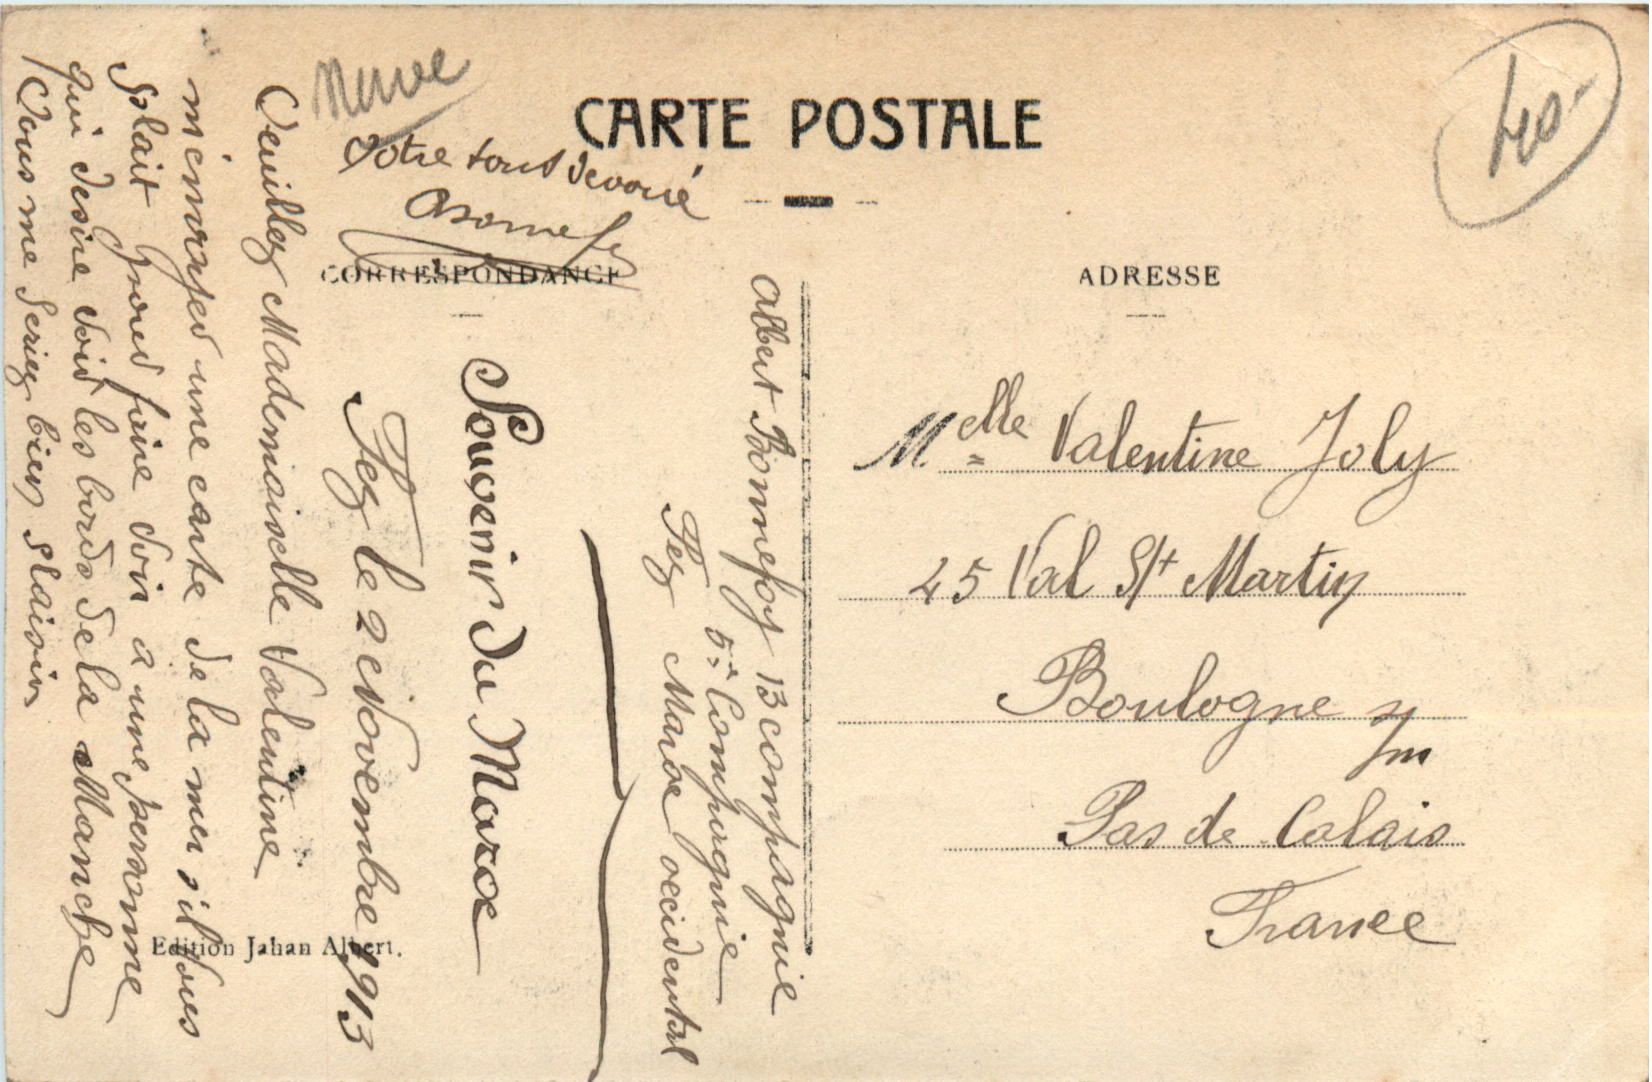 CARTE POSTALE
CORRESPONDANCE
ADRESSE
Albert Bonnefoy 13 compagnie
5e Compagnie
Fez Maroc occidental
Souvenir du Maroc
Fez le 2 Novembre 1913
Veuillez Mademoiselle Valentine
m'envoyed une carte de la mer s'il vous
plait pour faire voir a une personne
qui desire void les bords de la Manche
Vous me Seriez bien plaisir
Votre tout devoué
Melle Valentine Joly
45 Val St Martin
Boulogne s/m
Pas de Calais
France
40-
Edition Jahan Albert.